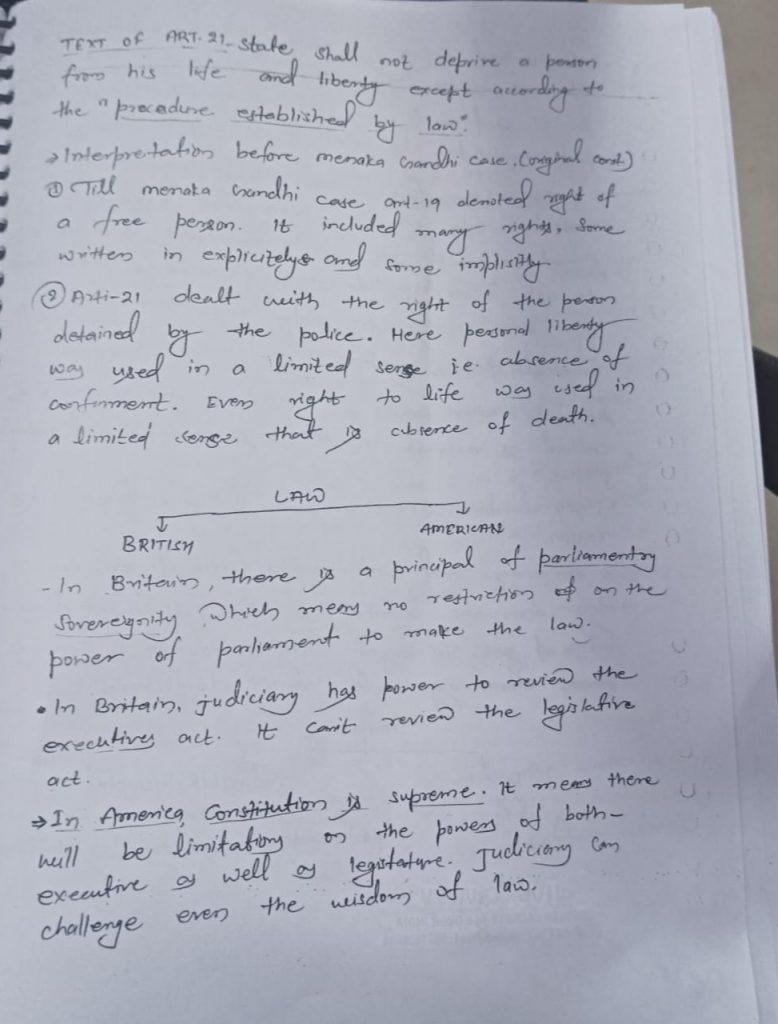 TEXT OF ART. 21 - State shall not deprive a person
from his life and liberty except according to
the "procedure established by law".
→ Interpretation before menaka Gandhi case. (original const.)
① Till menaka Gandhi case art-19 denoted right of
a free person. It included many rights, some
written in explicitely and some implisitly
② Arti-21 dealt with the right of the person
detained by the police. Here personal liberty
was used in a limited sense i.e. absence of
confinment. Even right to life was used in
a limited sense that is absence of death.
LAW
BRITISH AMERICAN
- In Britain, there is a principal of parliamentry
Sovereignity which means no restriction on the
power of parliament to make the law.
• In Britain, judiciary has power to review the
executives act. It can't review the legislative
act.
⇒ In America, Constitution is supreme. It means there
will be limitations on the powers of both -
executive as well as legistature. Judiciary can
challenge even the wisdom of law.